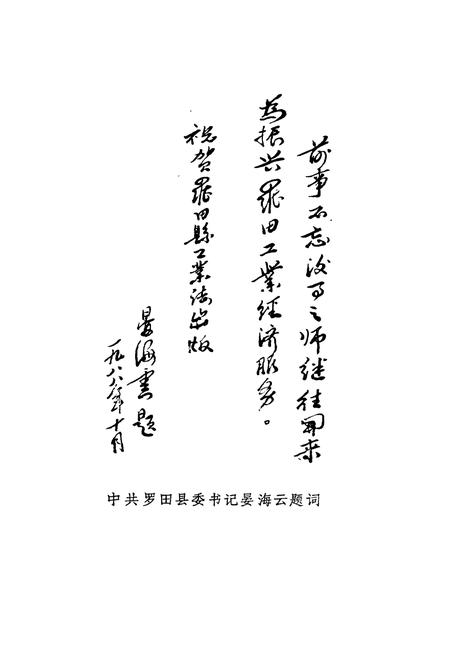 前事不忘后事之师继往開来
為振兴羅田工业经济服务。
祝贺羅田縣工业志出版
晏海雲題
一九八八年十月
中共罗田县委书记晏海云题词